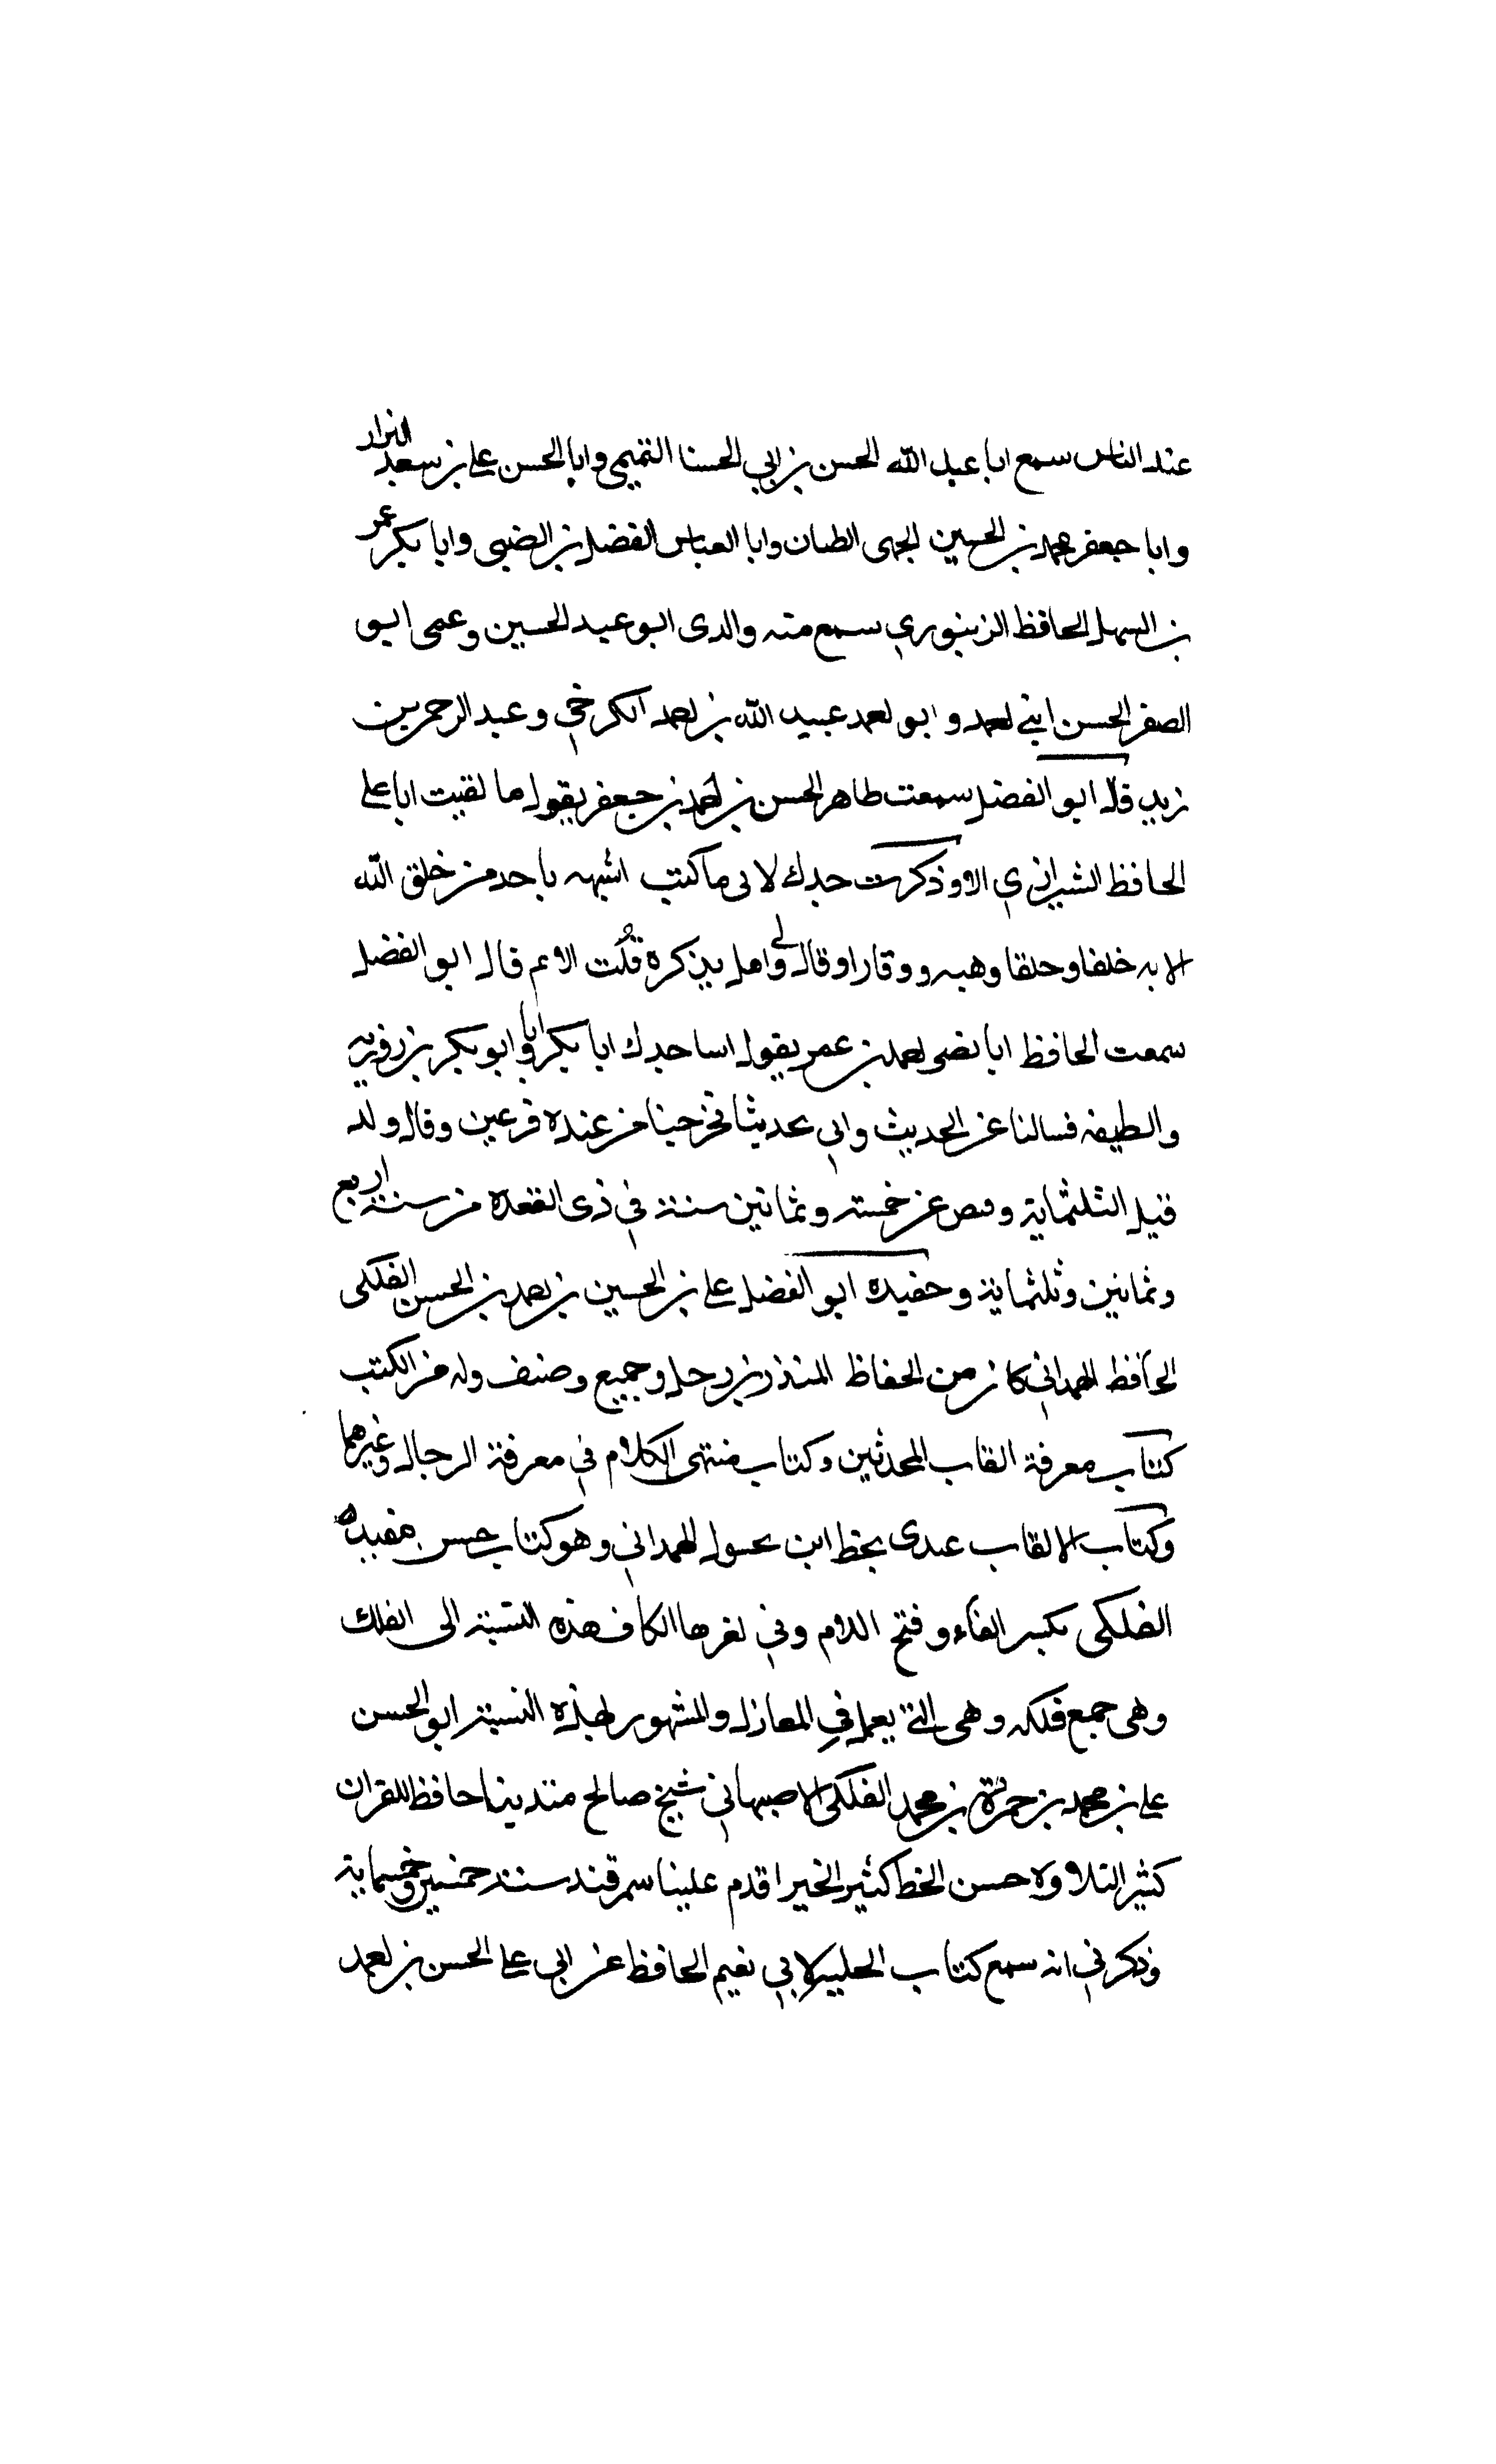 عند الناس سمع ابا عبد الله الحسن بن ابي الحسنا التميمي وابا الحسن علي بن سعد البزار
وابا جعفر محمد بن الحسين الجهى الطيان وابا العباس الفضل بن الضبي وابا بكر عمر
بن السهل الحافظ الزينوري سمع منه والدى ابو عبد الحسين وعمى ابو
الصقر الحسن ابني احمد و ابو احمد عبيد الله بن احمد الكرخي و عبد الرحمن بن
زيد قال ابو الفضل سمعت طاهر الحسن بن احمد بن جعفر يقول ما لقيت ابا علي
الحافظ الشيرازي الا وذكرت جدك لانى ما كتب اشبه باحد من خلق الله
الا به خلقا وخلقا وهيبه ووقارا وقال لي وامل يذكره قلت الا نعم قال ابو الفضل
سمعت الحافظ ابا نصر احمد بن عمر يقول اسا جدك ابا بكر وابا ابو بكر بن روزبه
والطيفه فسالنا عن الحديث وابي بحديثا فخرجنا من عنده فرعين وقال ولد
قبل الثلثماية وقبض عن خمسة وثمانين سنة في ذى القعدة من سنة اربع
وثمانين وثلثماية وحفيده ابو الفضل علي بن الحسين بن احمد بن الحسن الفلكى
الحافظ الهمداني كان من الحفاظ المنذر بن رحل وجميع وصنف وله من الكتب
كتاب معرفة القاب المحدثين وكتاب منتهى الكلام في معرفة الرجال وغيرهما
وكتاب الالقاب عندى بخط ابن بحسول الهمداني وهو كتاب حسن مفيد
الفلكى بكسر الفاء وفتح اللام وفي اخرها الكاف هذه النسبة الى الفلك
وهى جمع فلكه وهى التى يعمل في المغازل والمشهور بهذه النسبة ابو الحسن
علي بن محمد بن حمزة بن محمد الفلكى الاصبهاني شيخ صالح متدينا حافظ للقران
كثير التلاوة حسن الخط كثير الخير اقدم علينا سمرقند سنة خمسين وخمسماية
وذكر في انه سمع كتاب الحلية لابي نعيم الحافظ عن ابى على الحسن بن احمد